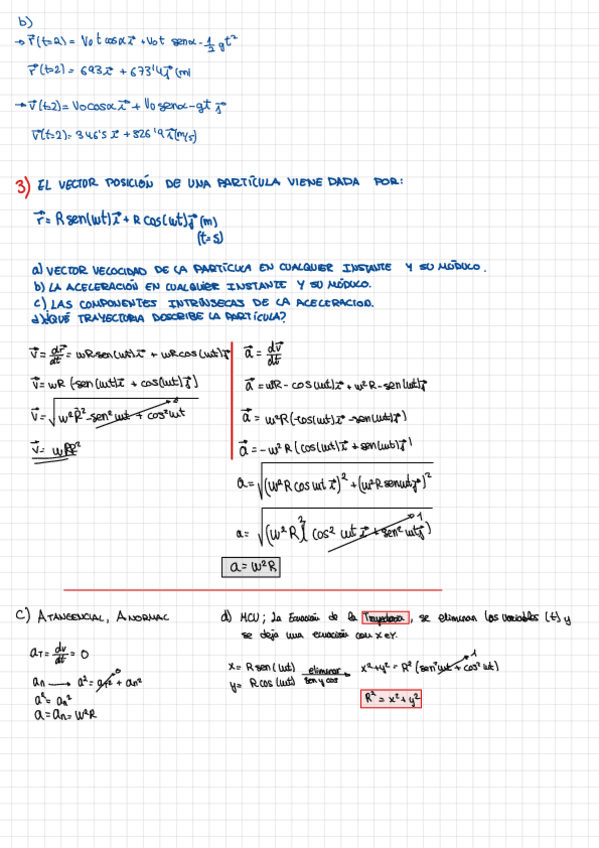 b)
→ r⃗(t=2) = V₀t cosα i⃗ + V₀t senα - 1/2 gt²
r⃗(t=2) = 693 i⃗ + 673'4 j⃗ (m)
→ v⃗(t=2) = V₀cosα i⃗ + V₀senα - gt j⃗
v⃗(t=2) = 346'5 i⃗ + 326'9 j⃗ (m/s)
3) EL VECTOR POSICIÓN DE UNA PARTÍCULA VIENE DADA POR:
r⃗ = R sen(wt) i⃗ + R cos(wt) j⃗ (m)
(t=s)
a) VECTOR VELOCIDAD DE LA PARTÍCULA EN CUALQUIER INSTANTE Y SU MÓDULO.
b) LA ACELERACIÓN EN CUALQUIER INSTANTE Y SU MÓDULO.
c) LAS COMPONENTES INTRÍNSECAS DE LA ACELERACION.
d) ¿QUÉ TRAYECTORIA DESCRIBE LA PARTÍCULA?
v⃗ = dr⃗/dt = wR sen(wt) i⃗ + wR cos(wt) j⃗
v⃗ = wR (-sen(wt) i⃗ + cos(wt) j⃗)
v⃗ = √(w²R² - sen² wt + cos² wt
v⃗ = wR
a⃗ = dv⃗/dt
a⃗ = wR - cos(wt) i⃗ + w²R - sen(wt) j⃗
a⃗ = w²R (-cos(wt) i⃗ - sen(wt) j⃗)
a⃗ = -w²R (cos(wt) i⃗ + sen(wt) j⃗)
a = √((w²R cos wt i⃗)² + (w²R sen wt j⃗)²
a = √((w²R)² ( cos² wt i⃗ + sen² wt j⃗) 1
a = w²R
C) ATANGENCIAL, ANORMAL
aT = dv/dt = 0
an → a² = aT² + an² 0
a² = an²
a = an = w²R
d) MCU; La Ecuación de la Trayectoria, se eliminan las variables (t) y
se deja una ecuación con x e y.
x = R sen(wt)
y = R cos(wt)
eliminar
sen y cos
x² + y² = R² (sen² wt + cos² wt) 1
R² = x² + y²